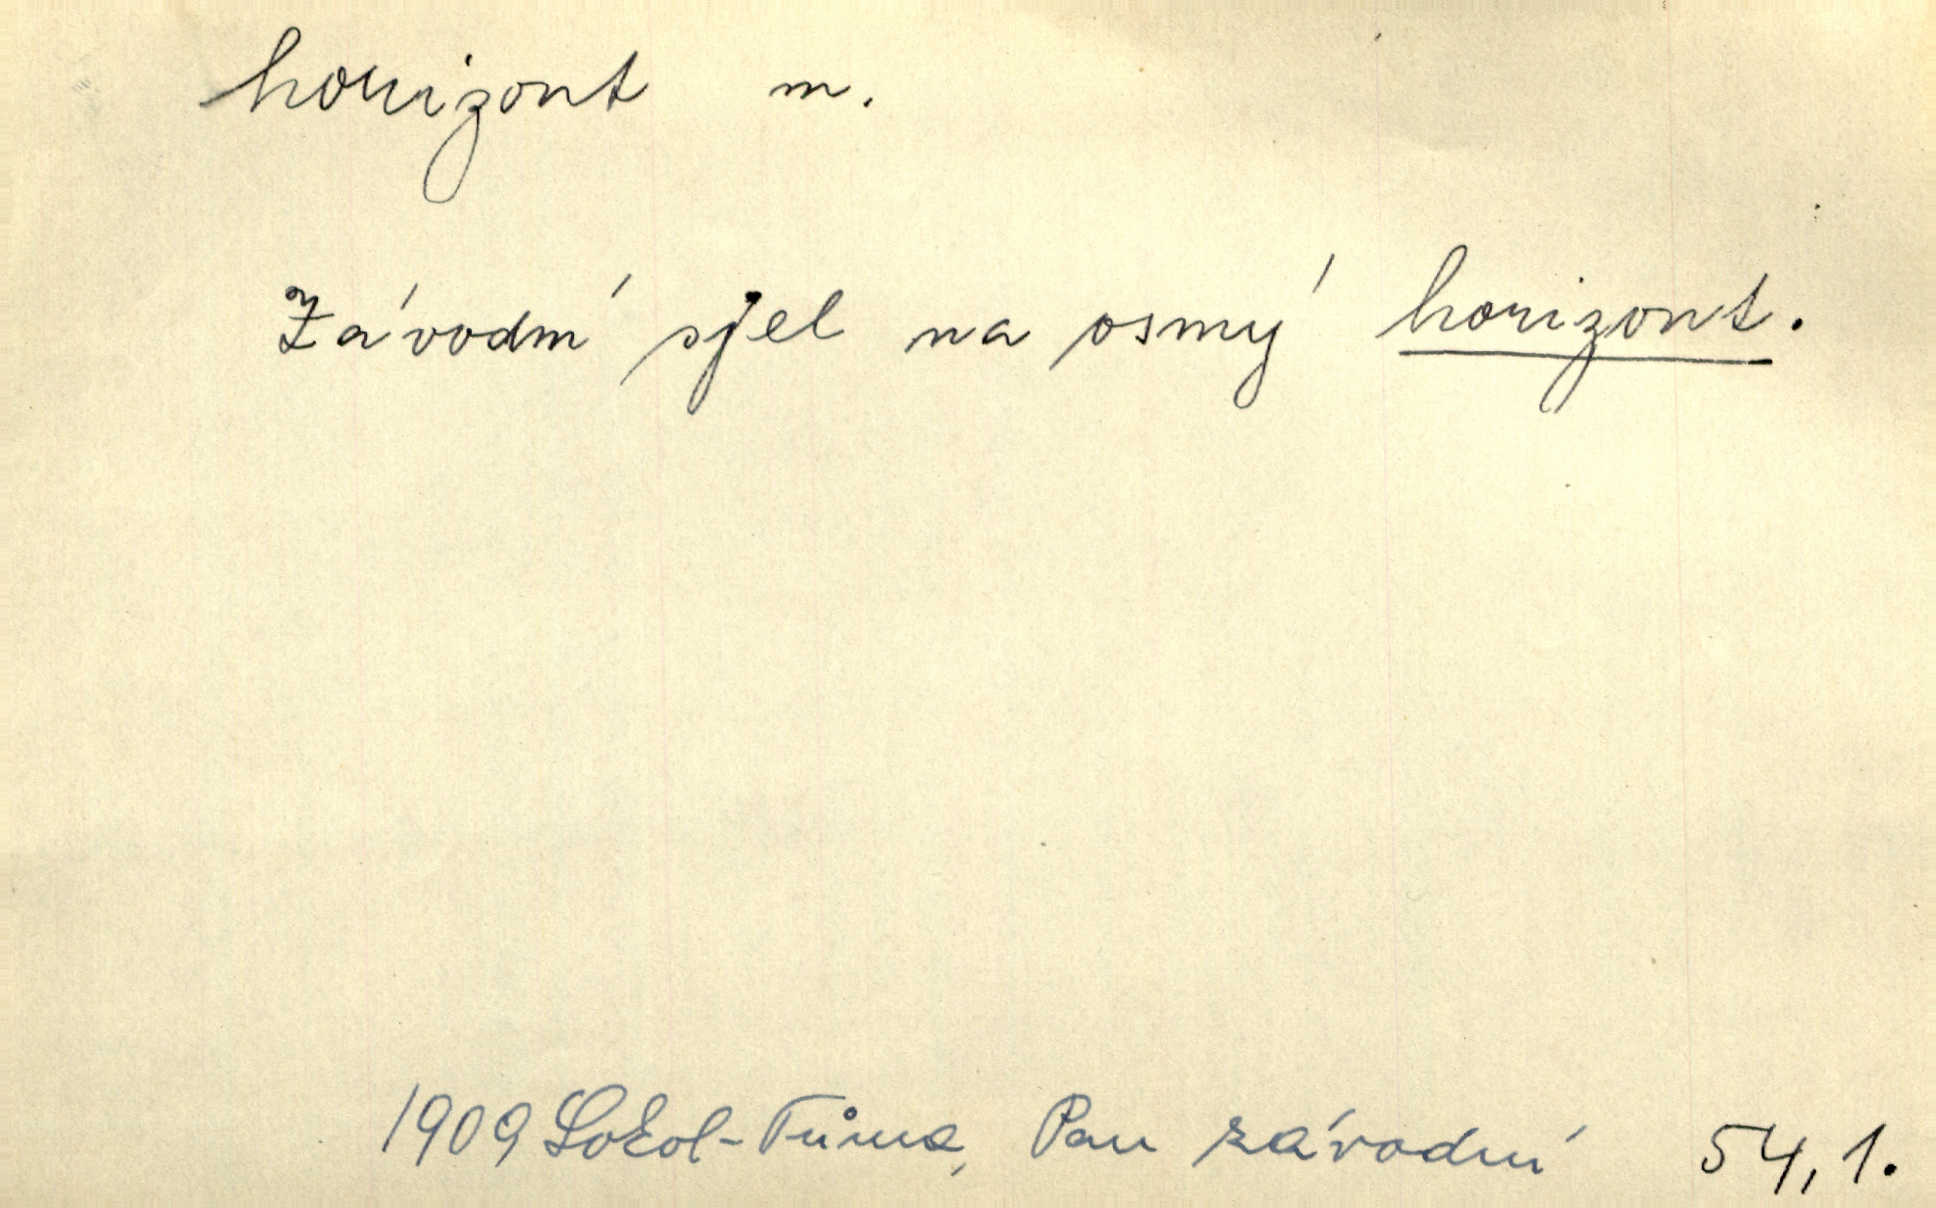 horizont m.
Závodní sjel na osmý horizont.
1909 Sokol-Tůma, Pan závodní 54,1.